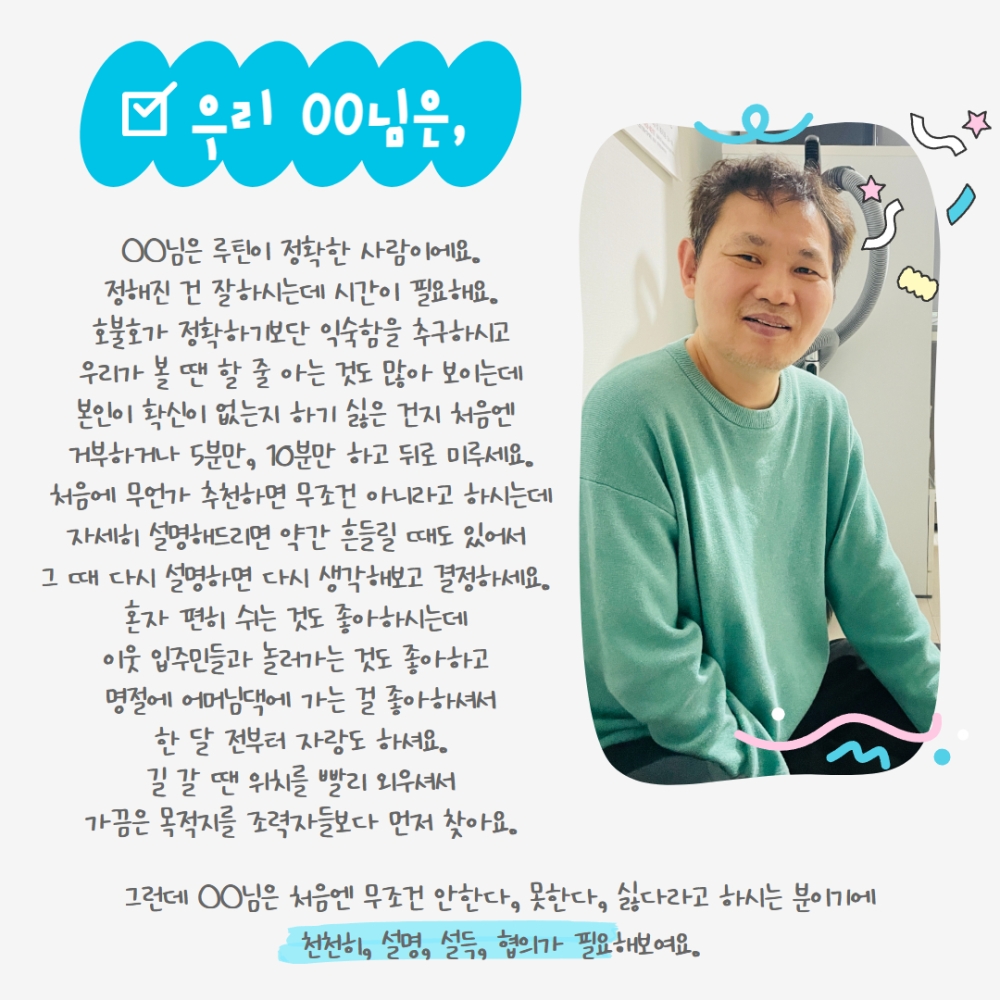 우리 OO님은,
OO님은 루틴이 정확한 사람이에요.
정해진 건 잘하시는데 시간이 필요해요.
호불호가 정확하기보단 익숙함을 추구하시고
우리가 볼 땐 할 줄 아는 것도 많아 보이는데
본인이 확신이 없는지 하기 싫은 건지 처음엔
거부하거나 5분만, 10분만 하고 뒤로 미루세요.
처음에 무언가 추천하면 무조건 아니라고 하시는데
자세히 설명해드리면 약간 흔들릴 때도 있어서
그 때 다시 설명하면 다시 생각해보고 결정하세요.
혼자 편히 쉬는 것도 좋아하시는데
이웃 입주민들과 놀러가는 것도 좋아하고
명절에 어머님댁에 가는 걸 좋아하셔서
한 달 전부터 자랑도 하셔요.
길 갈 땐 위치를 빨리 외우셔서
가끔은 목적지를 조력자들보다 먼저 찾아요.
그런데 OO님은 처음엔 무조건 안한다, 못한다, 싫다라고 하시는 분이기에
천천히, 설명, 설득, 협의가 필요해보여요.